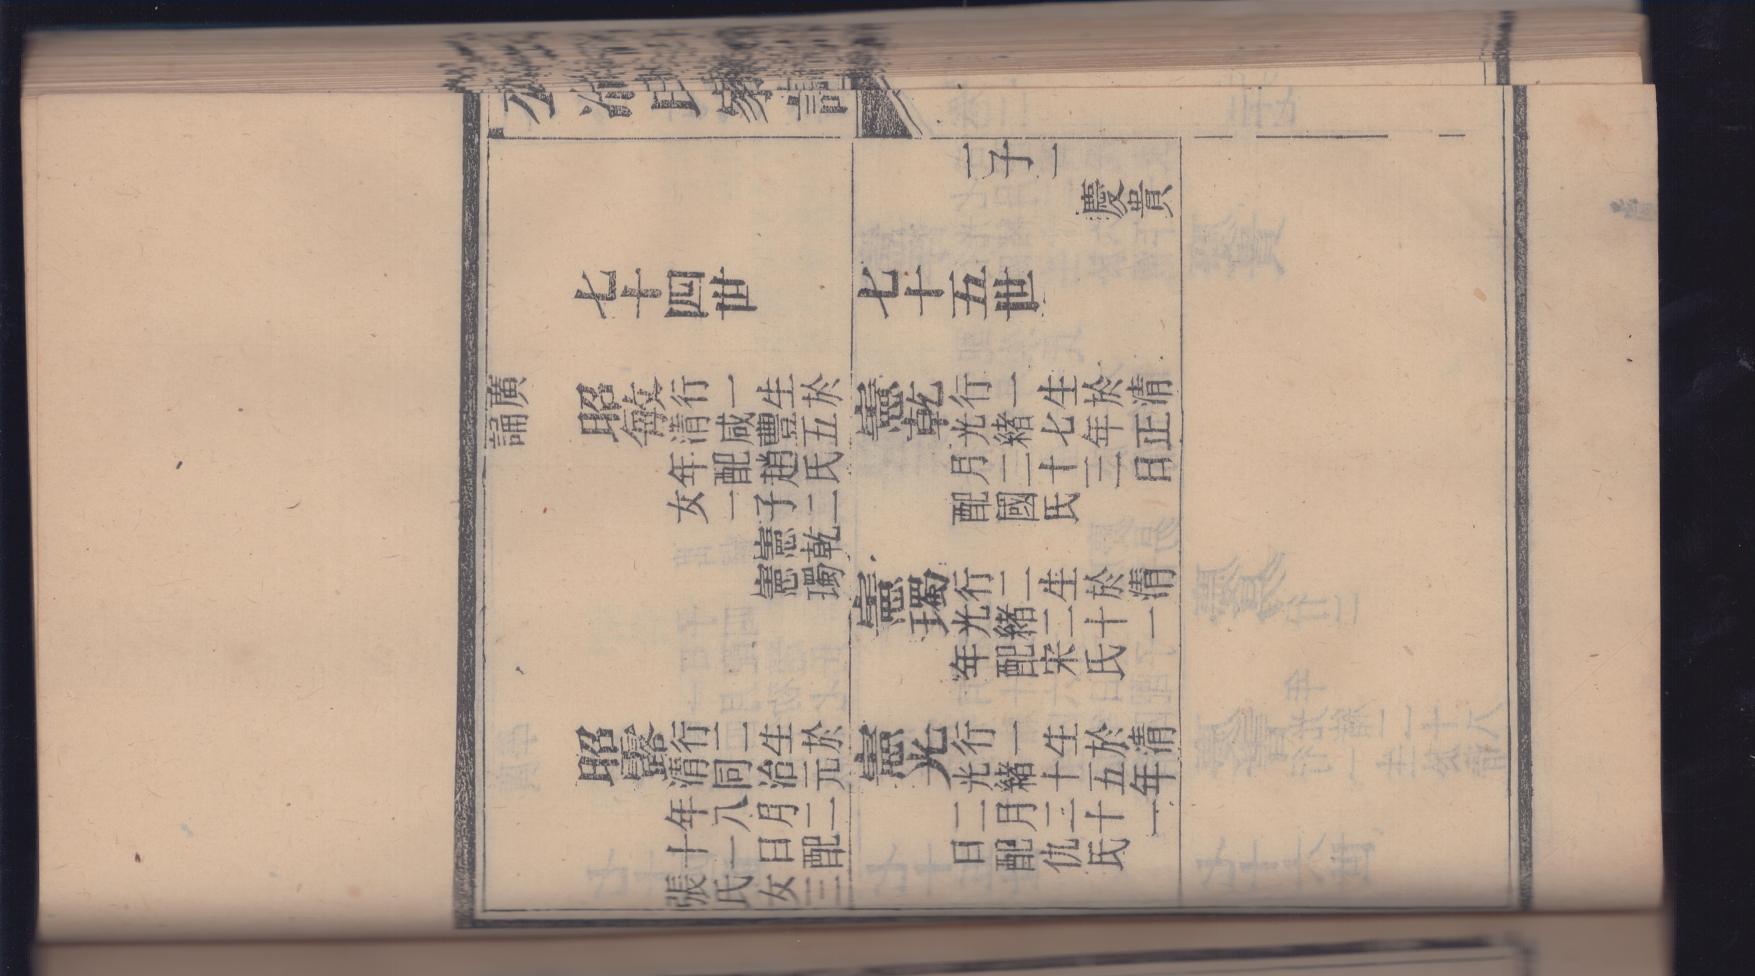 公冶氏家譜
一子一
慶貴
七十四世
七十五世
廣
誦
昭敏
行一生於
清咸豐五
年配趙氏
女一子二
憲乾
憲㻿
憲乾
行一生於清
光緒七年正
月二十三日
配國氏
憲㻿
行二生於清
光緒二十一
年配宋氏
昭露
行二生於
清同治元
年八月二
十一日配
張氏女三
憲光
行一生於清
光緒十五年
二月二十一
日配仇氏